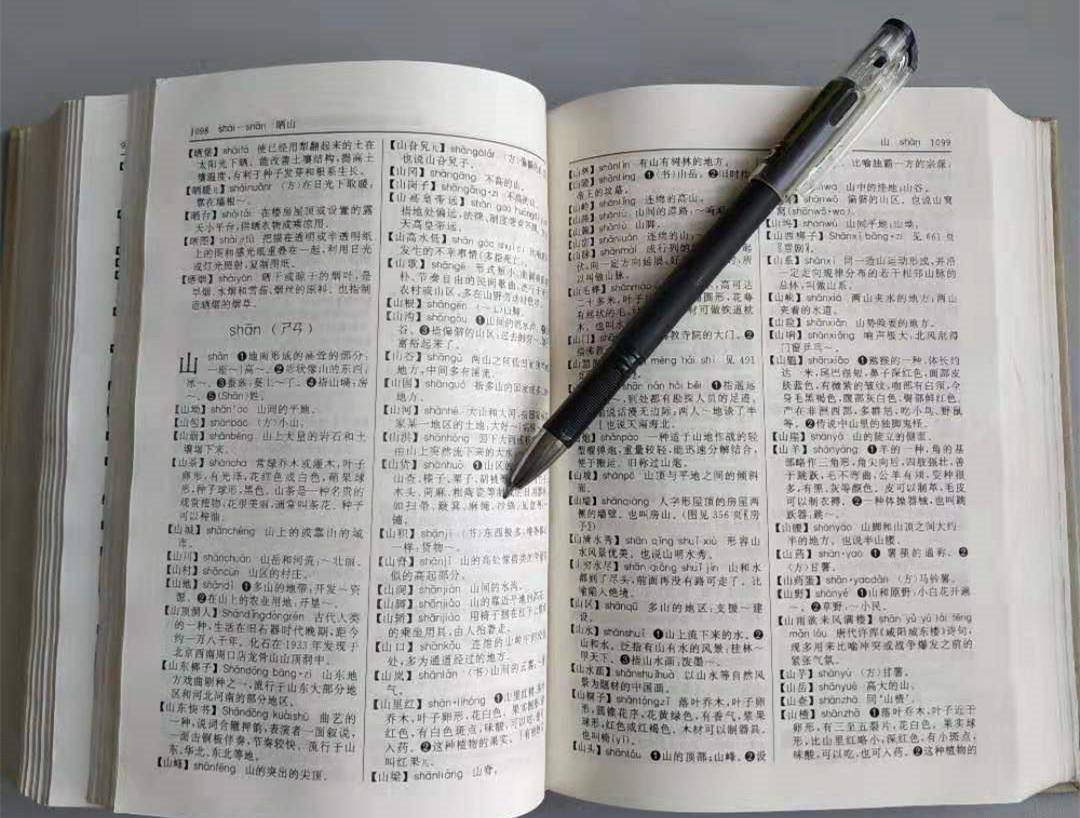 1098 shài-shān 晒山
【晒垡】shàifá 使已经用犁翻起来的土在
太阳光下晒,能改善土壤结构,提高土
壤温度,有利于种子发芽和根系生长。
【晒暖儿】shàinuǎnr 〈方〉在日光下取暖:
蹲在墙根～。
【晒台】shàitái 在楼房屋顶或设置的露
天小平台,供晒衣物或乘凉用。
【晒图】shài//tú 把描在透明或半透明纸
上的图和感光纸重叠在一起,利用日光
或灯光照射,复制图纸。
【晒烟】shàiyān 晒干或晾干的烟叶,是
旱烟、水烟和雪茄、烟丝的原料。也指制
造晒烟的烟草。
shān (ㄕㄢ)
山 shān ❶地面形成的高耸的部分:
一座～|高～。❷形状像山的东西:
冰～。❸蚕蔟:蚕上～了。❹指山墙:房
～。❺(Shān)姓。
【山坳】shān'ào 山间的平地。
【山包】shānbāo 〈方〉小山。
【山崩】shānbēng 山上大量的岩石和土
壤塌下来。
【山茶】shānchá 常绿乔木或灌木,叶子
卵形,有光泽,花红色或白色,蒴果球
形,种子球形,黑色。山茶是一种名贵的
观赏植物,花很美丽,通常叫茶花。种子
可以榨油。
【山城】shānchéng 山上的或靠山的城
市。
【山川】shānchuān 山岳和河流:～壮丽。
【山村】shāncūn 山区的村庄。
【山地】shāndì ❶多山的地带:开发～资
源。❷在山上的农业用地:开垦～。
【山顶洞人】Shāndǐngdòngrén 古代人类
的一种,生活在旧石器时代晚期,距今
约一万八千年。化石在1933年发现于
北京西南周口店龙骨山山顶洞中。
【山东梆子】Shāndōng bāng·zi 山东地
方戏曲剧种之一,流行于山东大部分地
区和河北河南的部分地区。
【山东快书】Shāndōng kuàishū 曲艺的
一种,说词合辙押韵,表演者一面叙说,
一面击铜板伴奏,节奏较快。流行于山
东、华北、东北等地。
【山峰】shānfēng 山的突出的尖顶。
【山旮旯儿】shāngālár 〈方〉
也说山旮旯子。
【山冈】shāngāng 不高的山。
【山岗子】shāngǎng·zi 不高的山。
【山高皇帝远】shān gāo huángdì
指地处偏远,法律、制度
天高皇帝远。
【山高水低】shān gāo shuǐ dī
发生的不幸事情(多指死亡)。
【山歌】shāngē 形式短小、
朴、节奏自由的民间歌曲,
农村或山区,多在山野劳动时歌唱。
【山根】shāngēn 山脚。
【山沟】shāngōu ❶山间的流水沟。
谷。❸指偏僻的山区:过去的穷～
富裕起来了。
【山谷】shāngǔ 两山之间低凹
地方,中间多有溪流。
【山国】shānguó 指多山的国家或多山的
地方。
【山河】shānhé 大山和大河,指国家或国
家某一地区的土地:大好～
【山洪】shānhóng 因下大雨或积雪
由山上突然流下来的大水
【山货】shānhuò ❶山区的
山查、榛子、栗子、胡桃
木头、苘麻、粗陶瓷等
如扫帚、簸箕、麻绳、沙锅、瓦盆
铺。
【山积】shānjī 〈书〉东西极多,堆得像山
一样:货物～。
【山脊】shānjǐ 山的高处像兽类的脊梁
似的高起部分。
【山涧】shānjiàn 山间的水沟。
【山脚】shānjiǎo 山的靠近平地的部分。
【山轿】shānjiào 用椅子捆在杠子上做成
的乘坐用具,由人抬着走。
【山口】shānkǒu 连绵的山岭中间较低
处,多为通道经过的地方。
【山岚】shānlán 〈书〉山间的云雾:
气。
【山里红】shān·lǐhóng ❶
乔木,叶子卵形,花白色,果实球形,
红色,有白色斑点,味酸,可以吃,
入药。❷这种植物的果实。‖有的地
叫红果儿。
【山梁】shānliáng 山脊。
山 shān 1099
【山林】shānlín 有山有树林的地方。
【山陵】shānlíng 〈书〉❶山岳。❷旧时指
帝王的坟墓。
【山岭】shānlǐng 连绵的高山。
【山路】shānlù 山间的道路:～崎岖
【山麓】shānlù 山脚。
【山峦】shānluán 连绵的山:
【山脉】shānmài 成行列的
状,向一定方向延展,
以叫做山脉。
【山毛榉】shānmáojǔ
二十多米,叶子
有丝状的毛,
木。也叫水
【山门】shān ❶佛教寺院的大门。❷
指佛教
méng hǎi shì 见491
shān nán hǎi běi ❶指遥远
～,到处都有勘探人员的足迹。
指说话漫无边际:两人～地谈了半
也说天南海北。
【山炮】shānpào 一种适于山地作战的轻
型榴弹炮,重量较轻,能迅速分解结合,
便于搬运。旧称过山炮。
【山坡】shānpō 山顶与平地之间的倾斜
面。
【山墙】shānqiáng 人字形屋顶的房屋两
侧的墙壁。也叫房山。(图见356页〖房
子〗)
【山清水秀】shān qīng shuǐ xiù 形容山
水风景优美。也说山明水秀。
【山穷水尽】shān qióng shuǐ jìn 山和水
都到了尽头,前面再没有路可走了。比
喻陷入绝境。
【山区】shānqū 多山的地区:支援～建
设。
【山水】shānshuǐ ❶山上流下来的水。❷
山和水。泛指有山有水的风景:桂林～
甲天下。❸指山水画:泼墨～。
【山水画】shānshuǐhuà 以山水等自然风
景为题材的中国画。
【山桐子】shāntóngzǐ 落叶乔木,叶子卵
形,圆锥花序,花黄绿色,有香气,浆果
球形,红色或红褐色。木材可以制器具。
也叫椅(yī)。
【山头】shāntóu ❶山的顶部;山峰。❷设
比喻独霸一方的宗派:
山中的洼地;山谷。
shānwō 偏僻的山区。也说山窝
窝(shānwō·wo)。
【山坞】shānwù 山间平地;山坳。
【山西梆子】Shānxī bāng·zi 见661页
〖晋剧〗。
【山系】shānxì 同一造山运动形成,并沿
一定走向规律分布的若干相邻山脉的
总体,叫做山系。
【山峡】shānxiá 两山夹水的地方;两山
夹着的水道。
【山险】shānxiǎn 山势险要的地方。
【山响】shānxiǎng 响声极大:北风刮得
门窗乒乓～。
【山魈】shānxiāo ❶猕猴的一种,体长约
达一米,尾巴很短,鼻子深红色,面部皮
肤蓝色,有微紫的皱纹,吻部有白须,全
身毛黑褐色,腹部灰白色,臀部鲜红色。
产在非洲西部,多群居,吃小鸟、野鼠
等。❷传说中山里的独脚鬼怪。
【山崖】shānyá 山的陡立的侧面。
【山羊】shānyáng ❶羊的一种,角的基
部略作三角形,角尖向后,四肢强壮,善
于跳跃,毛不弯曲,公羊有须。变种很
多,有黑、灰等颜色。皮可以制革,毛皮
可以制衣褥。❷一种体操器械,也叫跳
跃器;跳～。
【山腰】shānyāo 山脚和山顶之间大约一
半的地方。也说半山腰。
【山药】shān·yao ❶薯蓣的通称。❷
〈方〉甘薯。
【山药蛋】shān·yaodàn 〈方〉马铃薯。
【山野】shānyě ❶山和原野:小白花开遍
～。❷草野:～小民。
【山雨欲来风满楼】shān yǔ yù lái fēng
mǎn lóu 唐代许浑《咸阳城东楼》诗句,
现多用来比喻冲突或战争爆发之前的
紧张气氛。
【山芋】shānyù 〈方〉甘薯。
【山岳】shānyuè 高大的山。
【山查】shānzhā 同“山楂”。
【山楂】shānzhā ❶落叶乔木,叶子近于
卵形,有三至五裂片,花白色。果实球
形,比山里红略小,深红色,有小斑点,
味酸,可以吃,也可入药。❷这种植物的